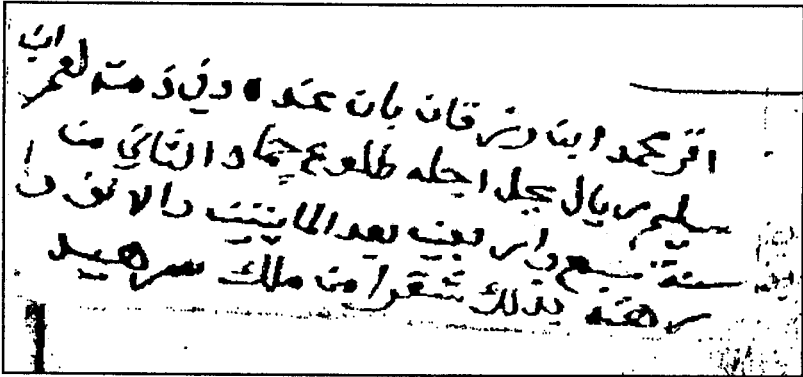 اقر محمد ابن وزرقان بان عنده وفي ذمته لعمر ابن
سليم ريال يحل اجله طلوع جماد الثاني من
سنة سبع واربعين بعد المايتين والالف و
رهنه بذلك شقرا من ملك سرهيد